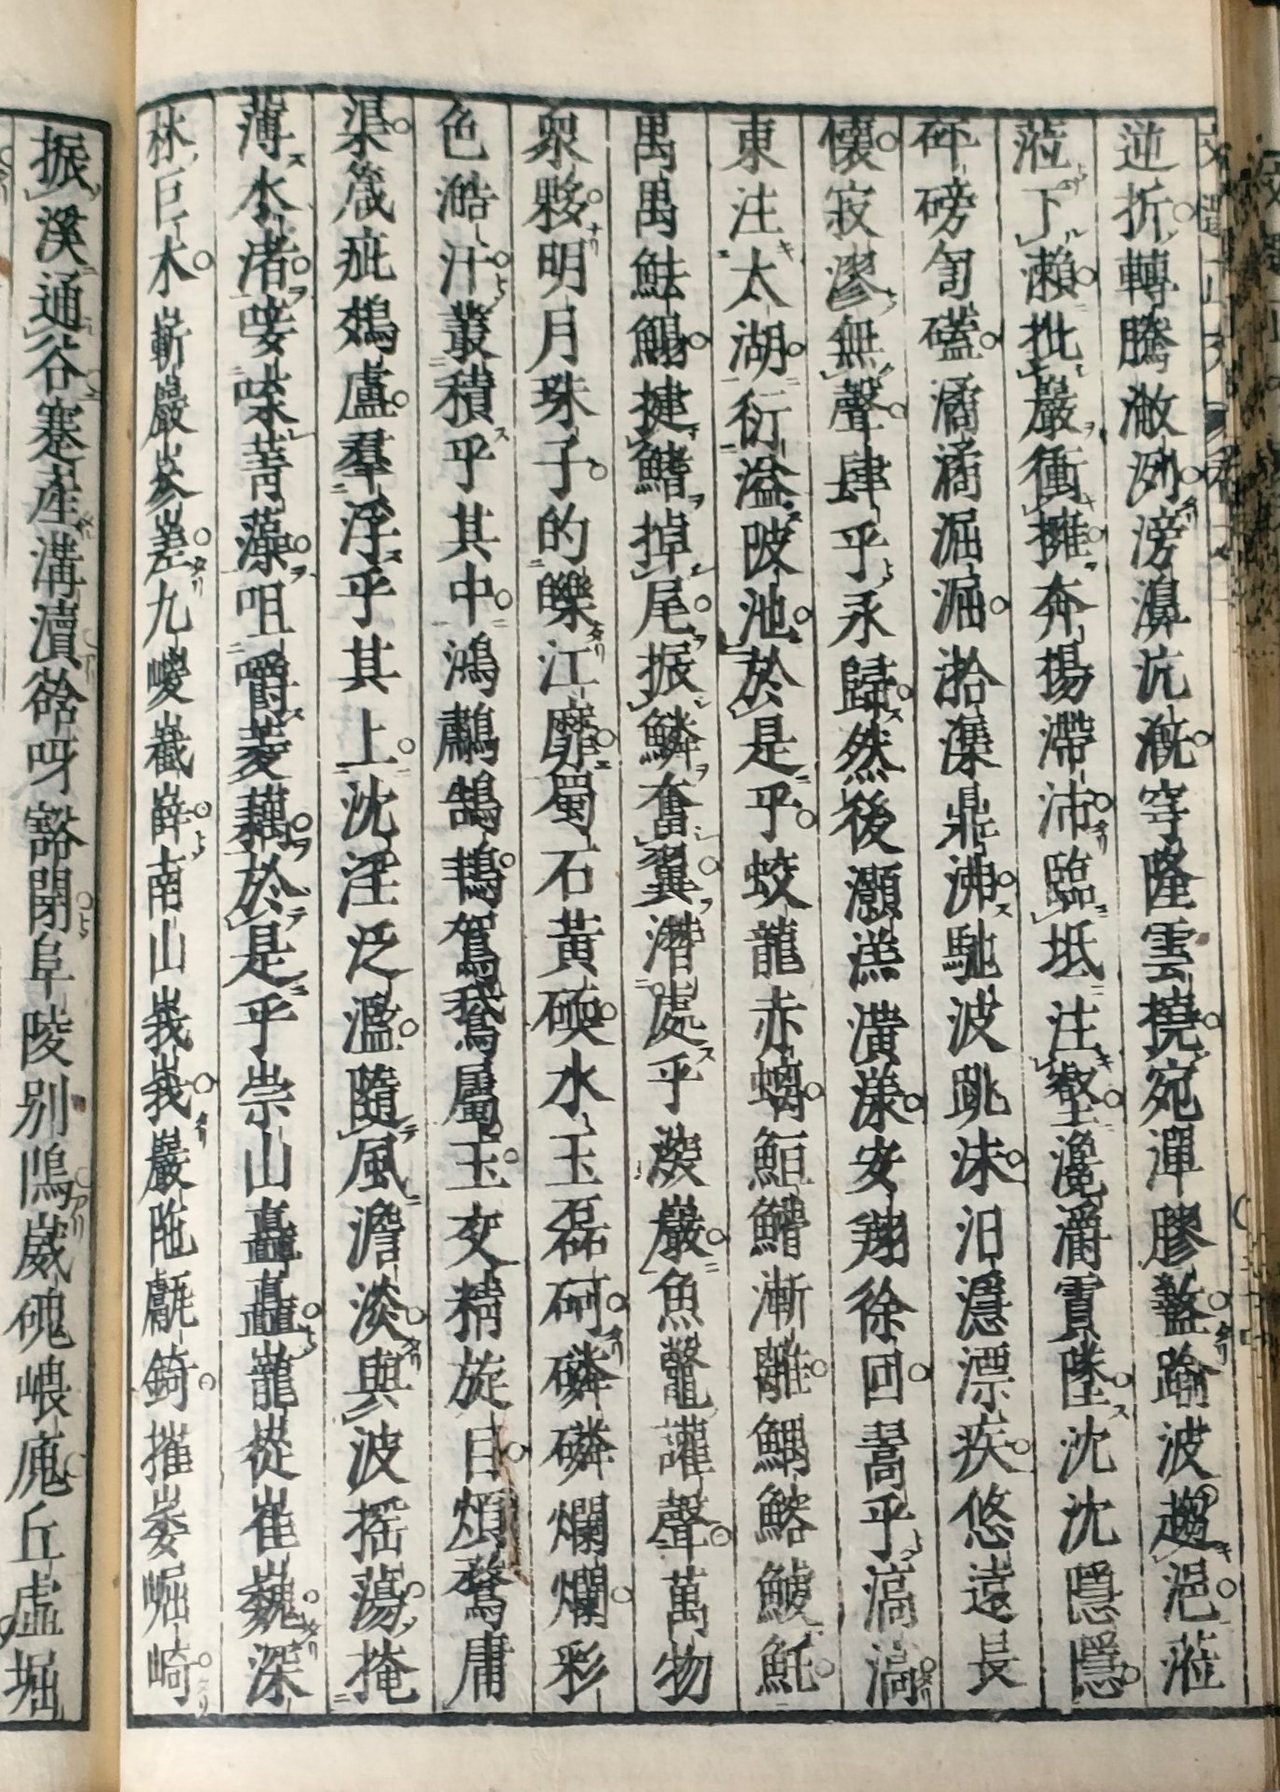 逆折轉騰潎洌滂濞沆溉穹隆雲橈宛潬膠盭踰波趨浥蒞
蒞下瀨批巖衝擁奔揚滯沛臨坻注壑瀺灂霣墜沈沈隱隱
砰磅訇礚潏潏淈淈湁潗鼎沸馳波跳沫汩㴔漂疾悠遠長
懷寂漻無聲肆乎永歸然後灝溔潢漾安翔徐回翯乎滈滈
東注太湖衍溢陂池於是乎蛟龍赤螭䱭䲛漸離鰅鰫鰬魠
禺禺魼鰨揵鰭掉尾振鱗奮翼潛處乎深巖魚鼈讙聲萬物
衆夥明月珠子的皪江靡蜀石黃碝水玉磊砢磷磷爛爛彩
色澔汗叢積乎其中鴻鷫鵠鴇駕鵝屬玉交精旋目煩鶩庸
渠箴疵鵁盧羣浮乎其上沈淫泛濫隨風澹淡與波摇蕩掩
薄水渚唼喋菁藻咀嚼菱藕於是乎崇山矗矗巃嵸崔巍深
林巨木嶄巖參差九嵕嶻嶭南山峩峩巖陁甗錡摧崣崛崎
振溪通谷蹇產溝瀆谽呀豁閉阜陵別隝崴磈㟪廆丘虛堀